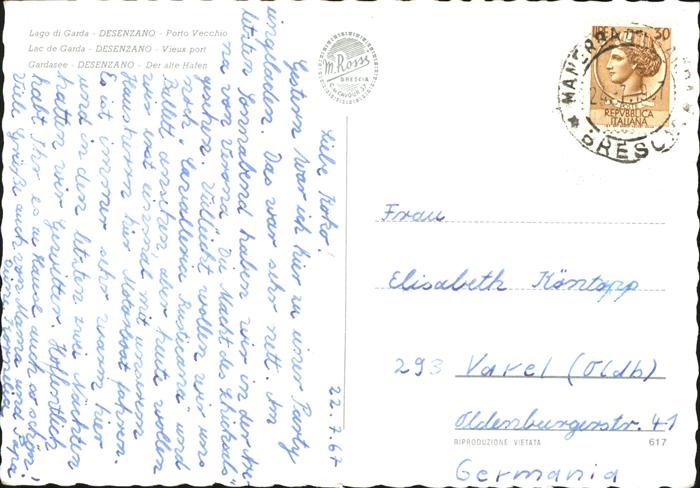 Lago di Garda - DESENZANO - Porto Vecchio
Lac de Garda - DESENZANO - Vieux port
Gardasee - DESENZANO - Der alte Hafen
M. Rossi
BRESCIA
C. CAVOUR 37
22.7.67
Liebe Koko!
Gestern war ich hier zu einer Party
eingeladen. Das war sehr nett. Am
letzten Sonnabend haben wir in der Are-
na von Verona "Die Macht des Schicksals"
gesehen. Vielleicht wollen wir uns
noch "Cavalleria Rusticana" und
Ballett ansehen, aber heute wollen
wir erst einmal mit unserem
Hausherrn hier Motorboot fahren.
Es ist immer sehr warm hier
und in den letzten zwei Nächten
hatten wir Gewitter. Hoffentlich
habt Ihr es zu Hause auch so schön!
Viele Grüße auch von Mama und Papa
30
REPVBBLICA
ITALIANA
MANERBA DEL GARDA
BRESCIA
Frau
Elisabeth Köntopp
293 Varel (Oldb)
Oldenburgerstr. 41
RIPRODUZIONE VIETATA 617
Germania